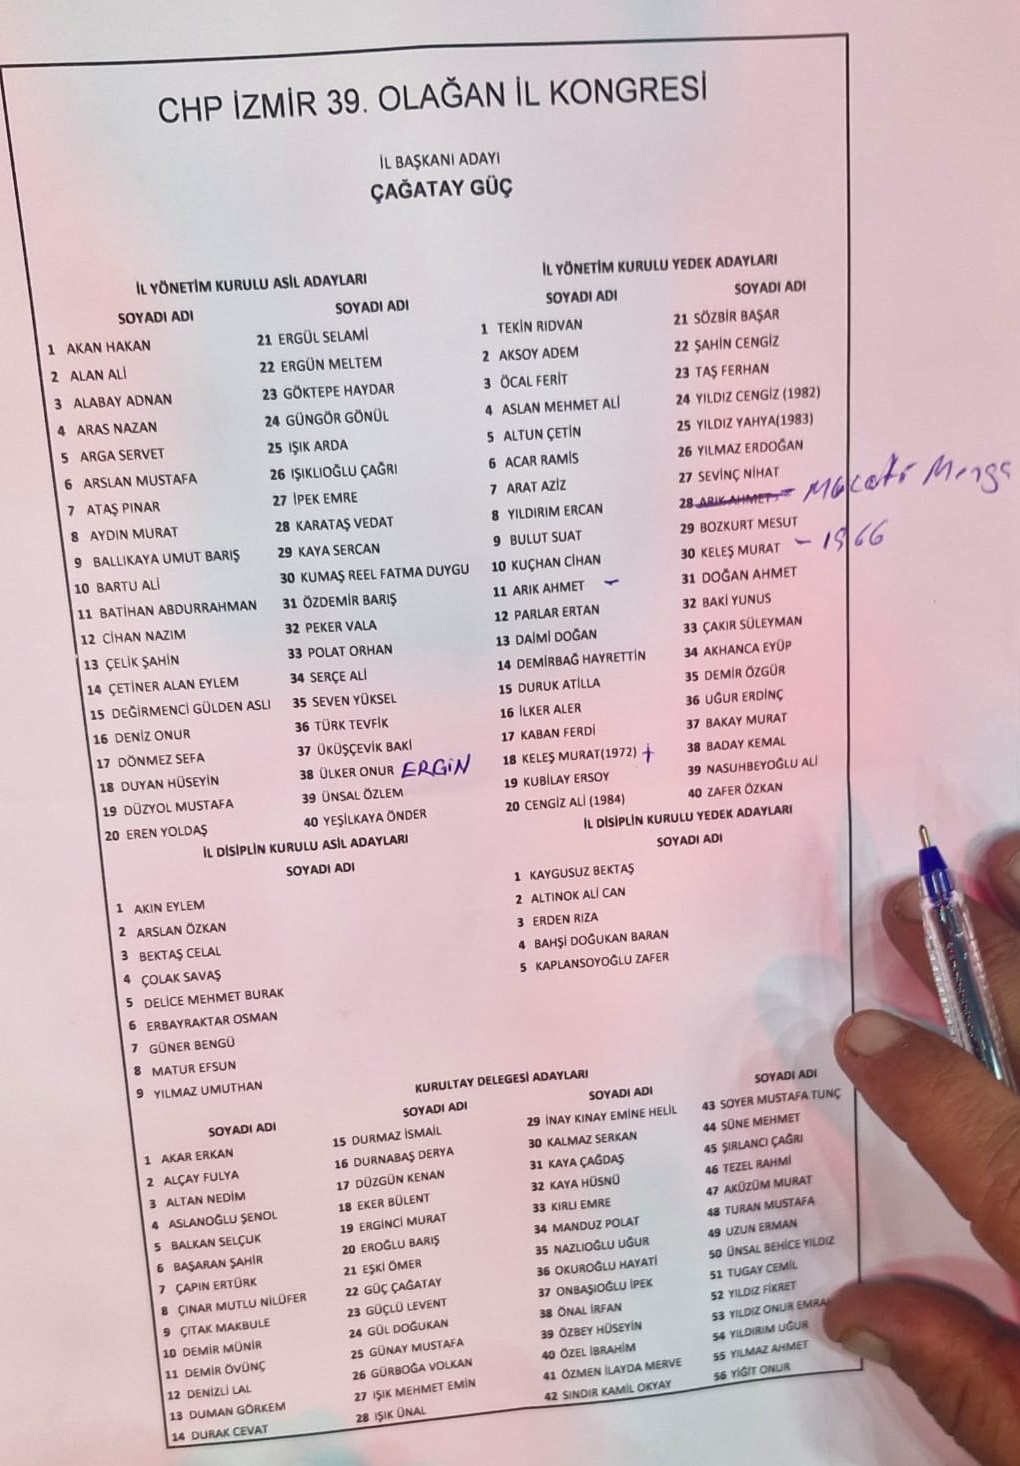 CHP İZMİR 39. OLAĞAN İL KONGRESİ
İL BAŞKANI ADAYI
ÇAĞATAY GÜÇ
İL YÖNETİM KURULU ASİL ADAYLARI
SOYADI ADI
1 AKAN HAKAN
2 ALAN ALİ
3 ALABAY ADNAN
4 ARAS NAZAN
5 ARGA SERVET
6 ARSLAN MUSTAFA
7 ATAŞ PINAR
8 AYDIN MURAT
9 BALLIKAYA UMUT BARIŞ
10 BARTU ALİ
11 BATİHAN ABDURRAHMAN
12 CİHAN NAZIM
13 ÇELİK ŞAHİN
14 ÇETİNER ALAN EYLEM
15 DEĞİRMENCİ GÜLDEN ASLI
16 DENİZ ONUR
17 DÖNMEZ SEFA
18 DUYAN HÜSEYİN
19 DÜZYOL MUSTAFA
20 EREN YOLDAŞ
SOYADI ADI
21 ERGÜL SELAMİ
22 ERGÜN MELTEM
23 GÖKTEPE HAYDAR
24 GÜNGÖR GÖNÜL
25 IŞIK ARDA
26 IŞIKLIOĞLU ÇAĞRI
27 İPEK EMRE
28 KARATAŞ VEDAT
29 KAYA SERCAN
30 KUMAŞ REEL FATMA DUYGU
31 ÖZDEMİR BARIŞ
32 PEKER VALA
33 POLAT ORHAN
34 SERÇE ALİ
35 SEVEN YÜKSEL
36 TÜRK TEVFİK
37 ÜKÜŞÇEVİK BAKİ
38 ÜLKER ONUR ERGİN
39 ÜNSAL ÖZLEM
40 YEŞİLKAYA ÖNDER
İL YÖNETİM KURULU YEDEK ADAYLARI
SOYADI ADI
1 TEKİN RIDVAN
2 AKSOY ADEM
3 ÖCAL FERİT
4 ASLAN MEHMET ALİ
5 ALTUN ÇETİN
6 ACAR RAMİS
7 ARAT AZİZ
8 YILDIRIM ERCAN
9 BULUT SUAT
10 KUÇHAN CİHAN
11 ARIK AHMET -
12 PARLAR ERTAN
13 DAİMİ DOĞAN
14 DEMİRBAĞ HAYRETTİN
15 DURUK ATİLLA
16 İLKER ALER
17 KABAN FERDİ
18 KELEŞ MURAT(1972) +
19 KUBİLAY ERSOY
20 CENGİZ ALİ (1984)
SOYADI ADI
21 SÖZBİR BAŞAR
22 ŞAHİN CENGİZ
23 TAŞ FERHAN
24 YILDIZ CENGİZ (1982)
25 YILDIZ YAHYA(1983)
26 YILMAZ ERDOĞAN
27 SEVİNÇ NİHAT
28 ARIK AHMET -
29 BOZKURT MESUT
30 KELEŞ MURAT - 1966
31 DOĞAN AHMET
32 BAKİ YUNUS
33 ÇAKIR SÜLEYMAN
34 AKHANCA EYÜP
35 DEMİR ÖZGÜR
36 UĞUR ERDİNÇ
37 BAKAY MURAT
38 BADAY KEMAL
39 NASUHBEYOĞLU ALİ
40 ZAFER ÖZKAN
İL DİSİPLİN KURULU ASİL ADAYLARI
SOYADI ADI
1 AKIN EYLEM
2 ARSLAN ÖZKAN
3 BEKTAŞ CELAL
4 ÇOLAK SAVAŞ
5 DELİCE MEHMET BURAK
6 ERBAYRAKTAR OSMAN
7 GÜNER BENGÜ
8 MATUR EFSUN
9 YILMAZ UMUTHAN
İL DİSİPLİN KURULU YEDEK ADAYLARI
SOYADI ADI
1 KAYGUSUZ BEKTAŞ
2 ALTINOK ALİ CAN
3 ERDEN RIZA
4 BAHŞİ DOĞUKAN BARAN
5 KAPLANSOYOĞLU ZAFER
KURULTAY DELEGESİ ADAYLARI
SOYADI ADI
1 AKAR ERKAN
2 ALÇAY FULYA
3 ALTAN NEDİM
4 ASLANOĞLU ŞENOL
5 BALKAN SELÇUK
6 BAŞARAN ŞAHİR
7 ÇAPIN ERTÜRK
8 ÇINAR MUTLU NİLÜFER
9 ÇITAK MAKBULE
10 DEMİR MÜNİR
11 DEMİR ÖVÜNÇ
12 DENİZLİ LAL
13 DUMAN GÖRKEM
14 DURAK CEVAT
SOYADI ADI
15 DURMAZ İSMAİL
16 DURNABAŞ DERYA
17 DÜZGÜN KENAN
18 EKER BÜLENT
19 ERGİNCİ MURAT
20 EROĞLU BARIŞ
21 EŞKİ ÖMER
22 GÜÇ ÇAĞATAY
23 GÜÇLÜ LEVENT
24 GÜL DOĞUKAN
25 GÜNAY MUSTAFA
26 GÜRBOĞA VOLKAN
27 IŞIK MEHMET EMİN
28 IŞIK ÜNAL
SOYADI ADI
29 İNAY KINAY EMİNE HELİL
30 KALMAZ SERKAN
31 KAYA ÇAĞDAŞ
32 KAYA HÜSNÜ
33 KIRLI EMRE
34 MANDUZ POLAT
35 NAZLIOĞLU UĞUR
36 OKUROĞLU HAYATİ
37 ONBAŞIOĞLU İPEK
38 ÖNAL İRFAN
39 ÖZBEY HÜSEYİN
40 ÖZEL İBRAHİM
41 ÖZMEN İLAYDA MERVE
42 SINDIR KAMİL OKYAY
SOYADI ADI
43 SOYER MUSTAFA TUNÇ
44 SÜNE MEHMET
45 ŞIRLANCI ÇAĞRI
46 TEZEL RAHMİ
47 AKÜZÜM MURAT
48 TURAN MUSTAFA
49 UZUN ERMAN
50 ÜNSAL BEHİCE YILDIZ
51 TUGAY CEMİL
52 YILDIZ FİKRET
53 YILDIZ ONUR
54 YILDIRIM UĞUR
55 YILMAZ AHMET
56 YİĞİT ONUR